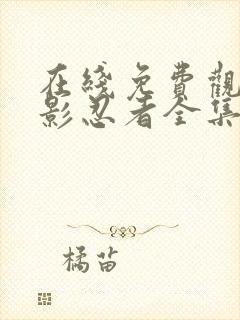 在綫免費觀
影忍者全集
橘苗